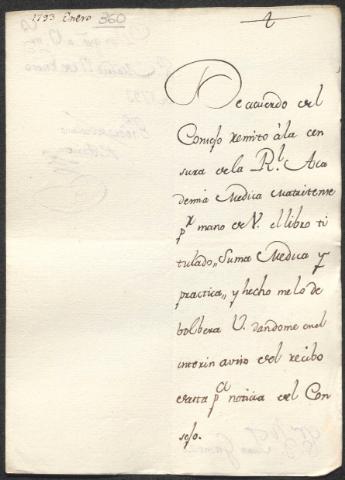 1793 Enero 360
De acuerdo del
Consejo remito à la cen
sura de la Rl. Aca
demia Medica Matritense
pr mano de V. el libro ti
tulado, Suma Medica y
practica, y hecho me lo de
bolbera V. dandome en el
interin aviso del recibo
de esta pa noticia del Con
sejo.